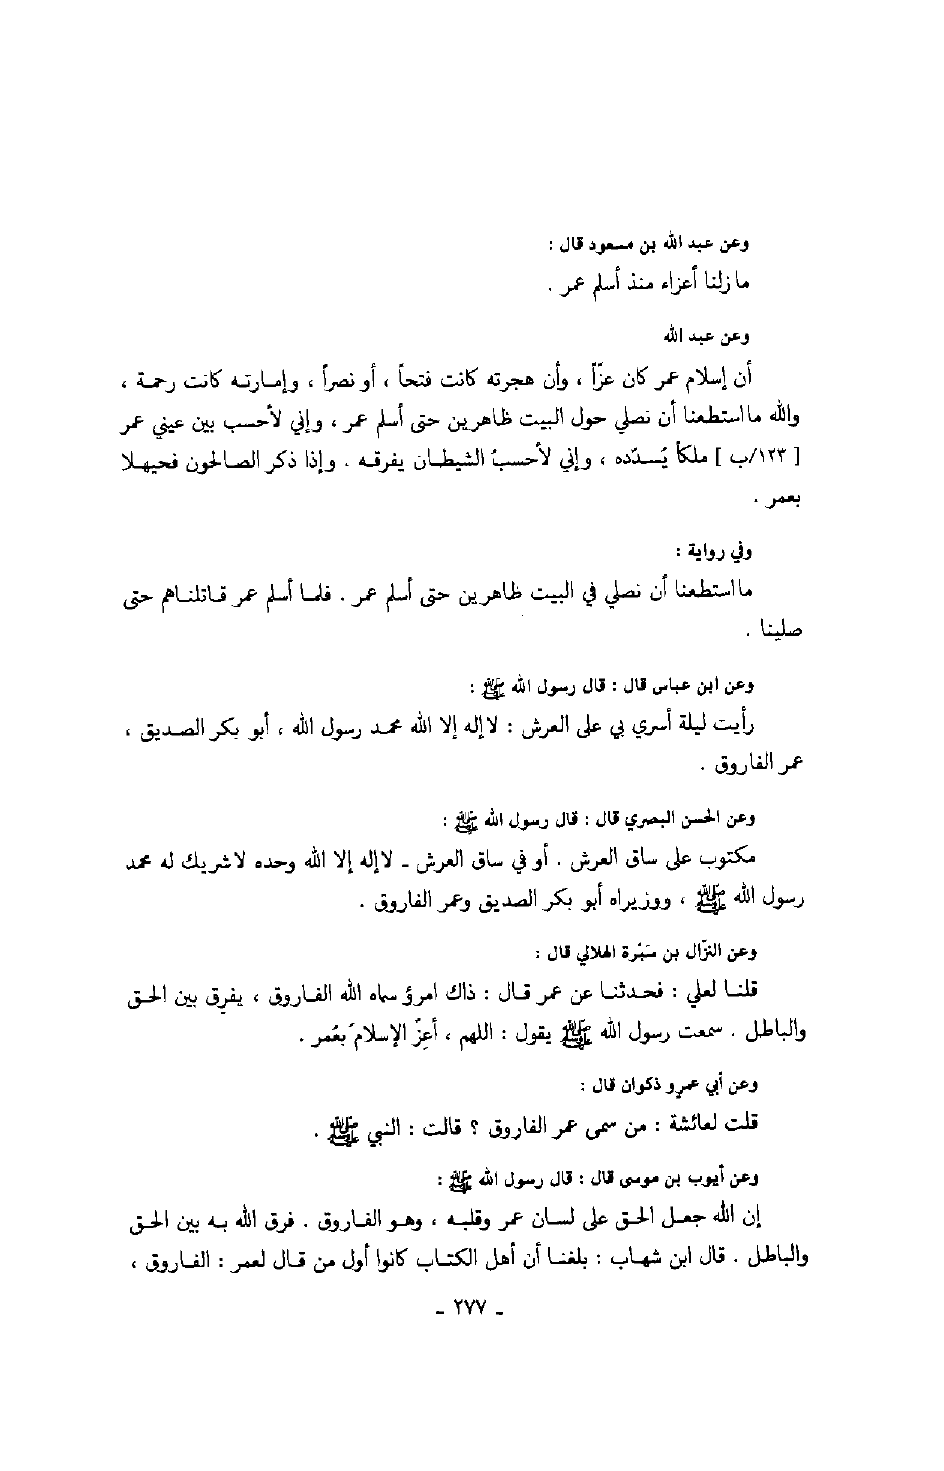 وعن عبد الله بن مسعود قال :
ما زلنا أعزاء منذ أسلم عمر .
وعن عبد الله
أن إسلام عمر كان عزّاً ، وأن هجرته كانت فتحاً ، أو نصراً ، وإمارته كانت رحمة ،
والله ما استطعنا أن نصلي حول البيت ظاهرين حتى أسلم عمر ، وإني لأحسب بين عيني عمر
[ ١٢٣/ب ] ملكاً يُسدّده ، وإني لأحسبُ الشيطان يفرقه . وإذا ذكر الصالحون فحيهلا
بعمر .
وفي رواية :
ما استطعنا أن نصلي في البيت ظاهرين حتى أسلم عمر . فلما أسلم عمر قاتلناهم حتى
صلينا .
وعن ابن عباس قال : قال رسول الله ﷺ :
رأيت ليلة أسري بي على العرش : لا إله إلا الله محمد رسول الله ، أبو بكر الصديق ،
عمر الفاروق .
وعن الحسن البصري قال : قال رسول الله ﷺ :
مكتوب على ساق العرش . أو في ساق العرش ـ لا إله إلا الله وحده لا شريك له محمد
رسول الله ﷺ ، ووزيراه أبو بكر الصديق وعمر الفاروق .
وعن النزّال بن سَبْرة الهلالي قال :
قلنا لعلي : فحدثنا عن عمر قال : ذاك امرؤ سماه الله الفاروق ، يفرق بين الحق
والباطل . سمعت رسول الله ﷺ يقول : اللهم ، أعِزّ الإسلامَ بعُمر .
وعن أبي عمرو ذكوان قال :
قلت لعائشة : من سمى عمر الفاروق ؟ قالت : النبي ﷺ .
وعن أيوب بن موسى قال : قال رسول الله ﷺ :
إن الله جعل الحق على لسان عمر وقلبه ، وهو الفاروق . فرق الله به بين الحق
والباطل . قال ابن شهاب : بلغنا أن أهل الكتاب كانوا أول من قال لعمر : الفاروق ،
ـ ٢٧٧ ـ